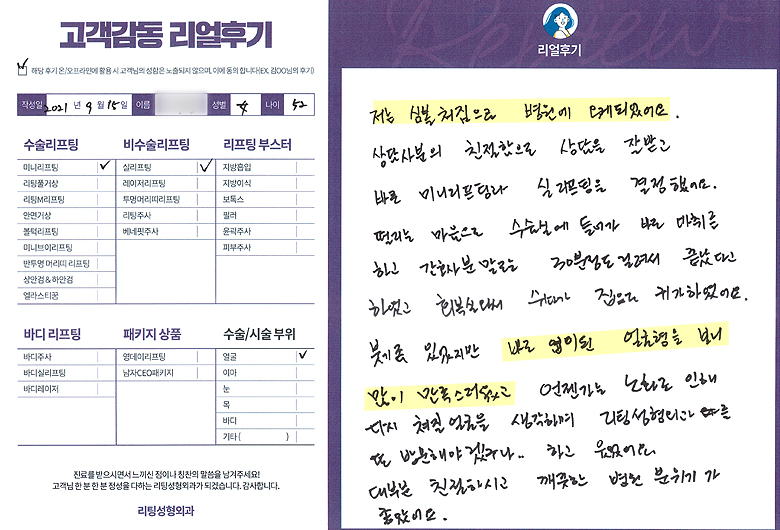 고객감동 리얼후기
해당 후기 온/오프라인에 활용 시 고객님의 성함은 노출되지 않으며, 이에 동의 합니다(EX. 김OO님의 후기)
작성일 2021 년 9 월 15 일 이름 성별 女 나이 52
수술리프팅
미니리프팅
리팅풀거상
리팅M리프팅
안면거상
볼턱리프팅
미니브이리프팅
반투명 머리띠 리프팅
상안검 & 하안검
엘라스티꿈
비수술리프팅
실리프팅
레이저리프팅
투명머리띠리프팅
리팅주사
베네핏주사
리프팅 부스터
지방흡입
지방이식
보톡스
필러
윤곽주사
피부주사
바디 리프팅
바디주사
바디실리프팅
바디레이저
패키지 상품
영데이리프팅
남자CEO패키지
수술/시술 부위
얼굴
이마
눈
목
바디
기타( )
진료를 받으시면서 느끼신 점이나 칭찬의 말씀을 남겨주세요!
고객님 한 분 한 분 정성을 다하는 리팅성형외과가 되겠습니다. 감사합니다.
리팅성형외과
Review
리얼후기
저는 심볼처짐으로 병원에 오게되었어요.
상담사분의 친절함으로 상담을 잘받고
바로 미니리프팅과 실리프팅을 결정했어요.
떨리는 마음으로 수술실에 들어가 바로 마취를
하고 간호사분 말로는 30분정도 걸려서 끝났다고
하였고 회복실에서 쉬다가 집으로 귀가하였어요.
붓기는 있었지만 바로 업이된 얼굴형을 보니
많이 만족스러웠고 언젠가는 노화로 인해
다시 쳐질 얼굴을 생각하며 리팅성형외과
또 방문해야겠구나.. 하고 웃었어요.
대부분 친절하시고 깨끗한 병원 분위기가
좋았어요.